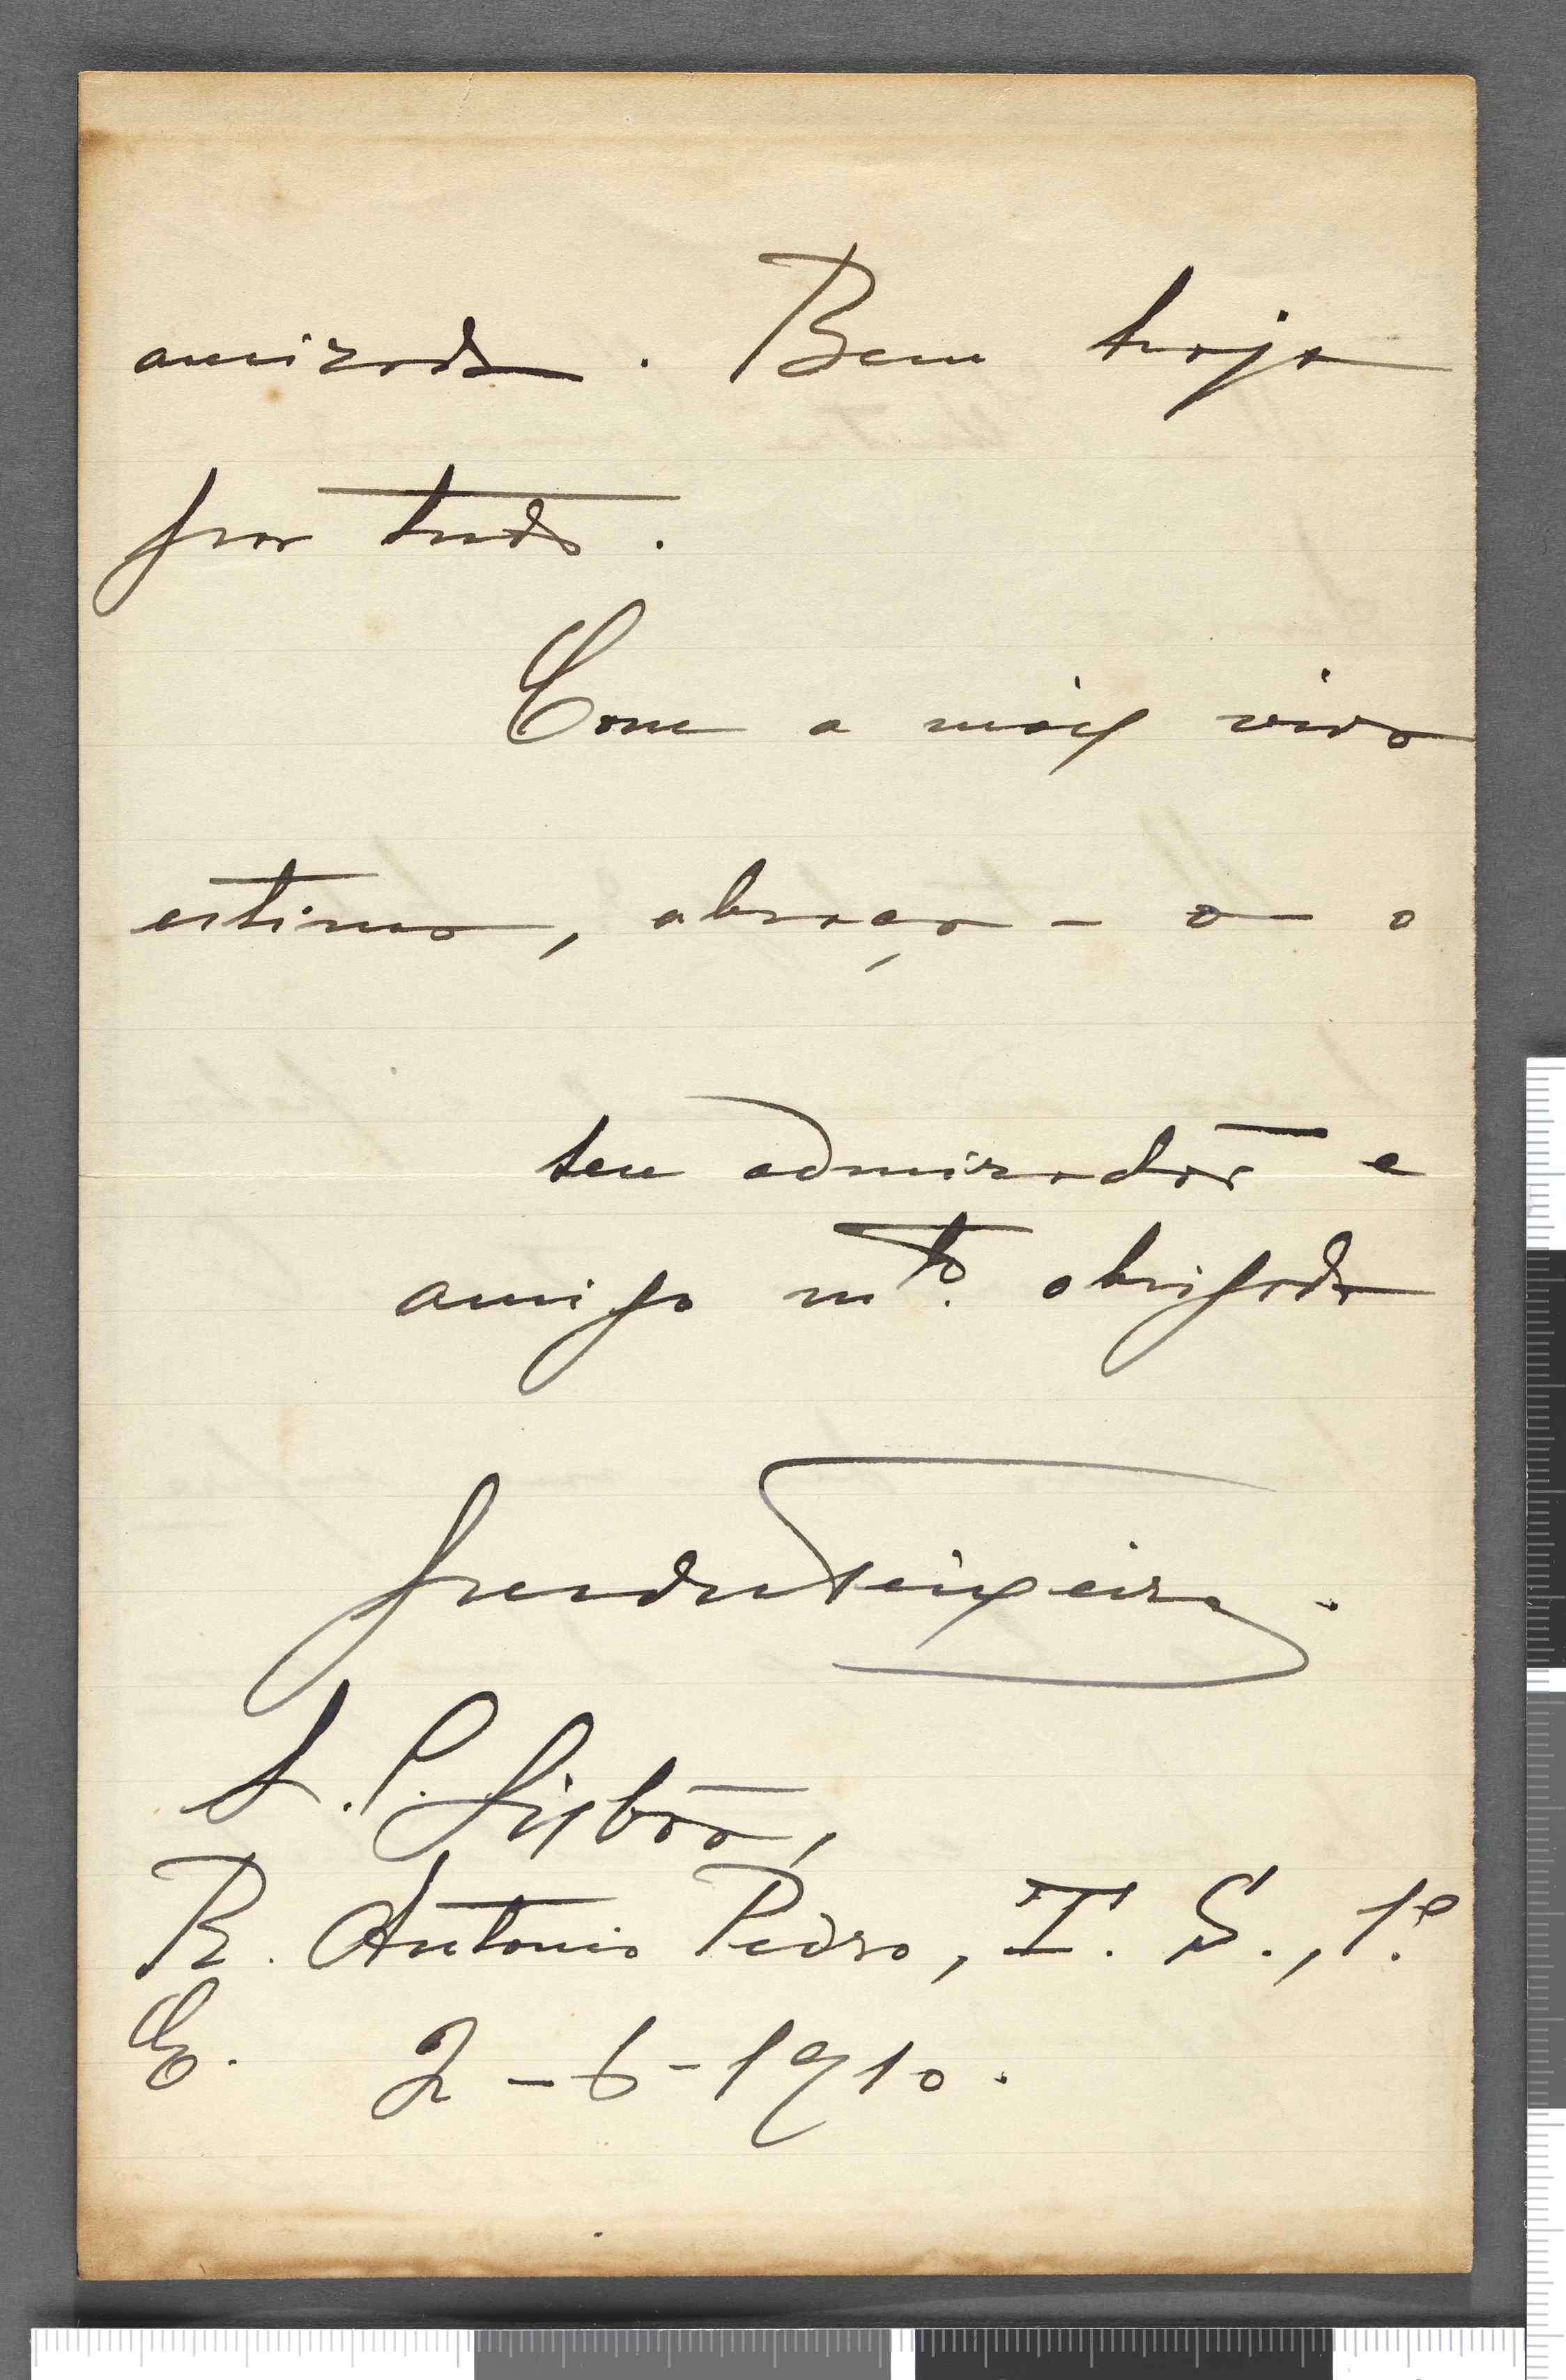 amizade. Bem haja
por tudo.
Com a mais viva
estima, abraça-o o
seu admirador e
amigo mto. obrigado
Teixeira.
S. C. Lisboa,
R. Antonio Pedro, I. S., 1º
E. 2-6-1910.